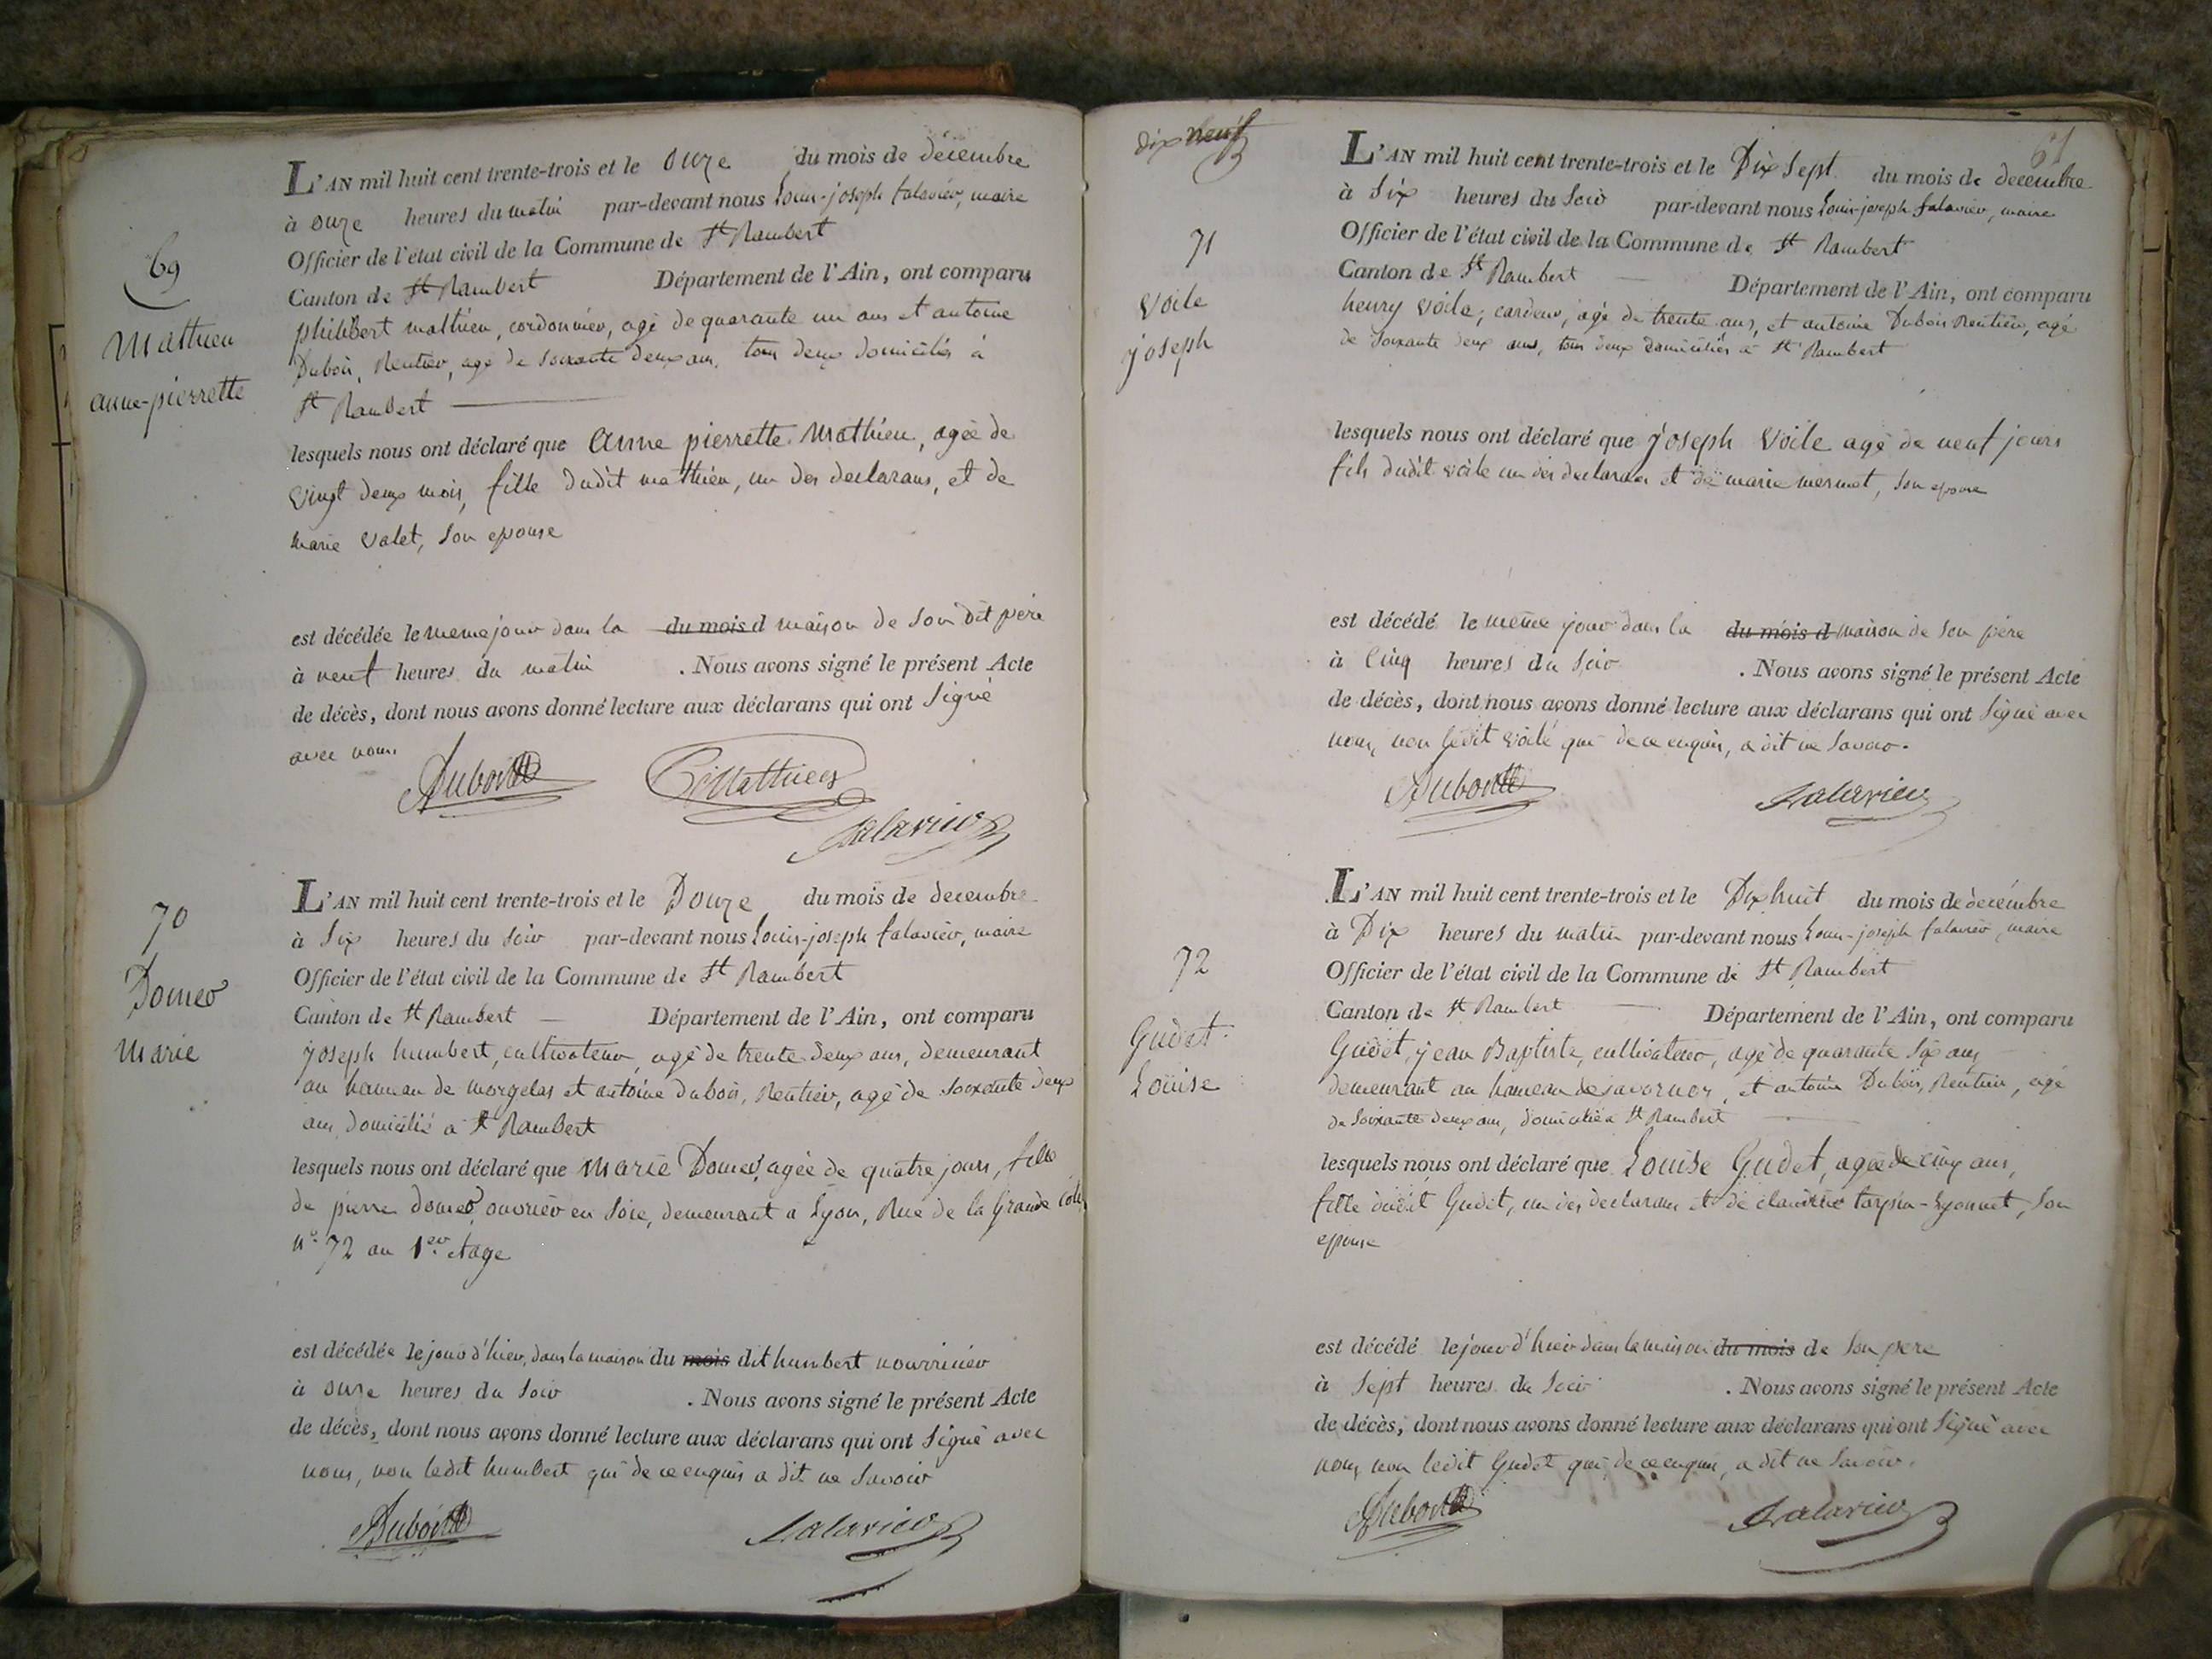 69
Mathieu
anne-pierrette
L'AN mil huit cent trente-trois et le onze du mois de décembre
à onze heures du matin par-devant nous Louis-joseph falavier, maire
Officier de l'état civil de la Commune de St Rambert
Canton de St Rambert Département de l'Ain, ont comparu
philibert mathieu, cordonnier, agé de quarante un ans et antoine
Dubois, Rentier, agé de soixante deux ans, tous deux domiciliés à
St Rambert
lesquels nous ont déclaré que anne pierrette Mathieu, agée de
vingt deux mois, fille dudit mathieu, un des declarans, et de
marie valet, son epouse
est décédée le meme jour dans la du mois d maison de son dit père
à neuf heures du matin . Nous avons signé le présent Acte
de décès, dont nous avons donné lecture aux déclarans qui ont signé
avec nous
Dubois Mathieu
falavier
70
Domer
Marie
L'AN mil huit cent trente-trois et le Douze du mois de decembre
à six heures du soir par-devant nous Louis-joseph falavier, maire
Officier de l'état civil de la Commune de St Rambert
Canton de St Rambert Département de l'Ain, ont comparu
joseph humbert, cultivateur, agé de trente deux ans, demeurant
au hameau de morgelas et antoine dubois, Rentier, agé de soixante deux
ans, domicilié à St Rambert
lesquels nous ont déclaré que Marie Domer, agée de quatre jours, fille
de pierre domer, ouvrier en soie, demeurant a Lyon, Rue de la Grande
n° 72 au 1er etage
est décédée le jour d'hier, dans la maison du mois dit humbert nourricier
à onze heures du soir . Nous avons signé le présent Acte
de décès, dont nous avons donné lecture aux déclarans qui ont signé avec
nous, non ledit humbert qui de ce enquis a dit ne savoir
Dubois falavier
dix neuf
61
71
Voile
joseph
L'AN mil huit cent trente-trois et le Dix sept du mois de decembre
à six heures du soir par-devant nous Louis-joseph falavier, maire
Officier de l'état civil de la Commune de St Rambert
Canton de St Rambert Département de l'Ain, ont comparu
henry voile, cardeur, agé de trente ans, et antoine Dubois Rentier, agé
de soixante deux ans, tous deux domiciliés à St Rambert
lesquels nous ont déclaré que joseph Voile agé de neuf jours
fils dudit voile un des declarans et de marie mermet, son epouse
est décédé le même jour dans la du mois d maison de son père
à cinq heures du soir . Nous avons signé le présent Acte
de décès, dont nous avons donné lecture aux déclarans qui ont signé avec
nous, non ledit voile qui de ce enquis, a dit ne savoir.
Dubois falavier
72
Gudet
Louise
L'AN mil huit cent trente-trois et le Dix huit du mois de décembre
à Dix heures du matin par-devant nous Louis-joseph falavier, maire
Officier de l'état civil de la Commune de St Rambert
Canton de St Rambert Département de l'Ain, ont comparu
Gudet, jean Baptiste, cultivateur, agé de quarante six ans
demeurant au hameau de javornoz, et antoine Dubois, Rentier, agé
de soixante deux ans, domicilié à St Rambert
lesquels nous ont déclaré que Louise Gudet, agée de cinq ans,
fille dudit Gudet, un des declarans et de claudine tarpin-Lyonnet, son
epouse
est décédé le jour d'hier dans la maison du mois de son pere
à sept heures du soir . Nous avons signé le présent Acte
de décès, dont nous avons donné lecture aux déclarans qui ont signé avec
nous, non ledit Gudet qui, de ce enquis, a dit ne savoir.
Dubois falavier